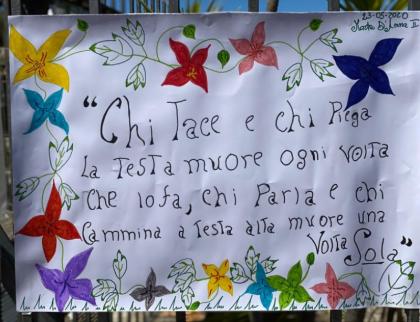 23-05-2020
"Chi Tace e chi Piega
La Testa muore ogni volta
Che lo fa, chi Parla e chi
Cammina a testa alta muore una
Volta Sola"